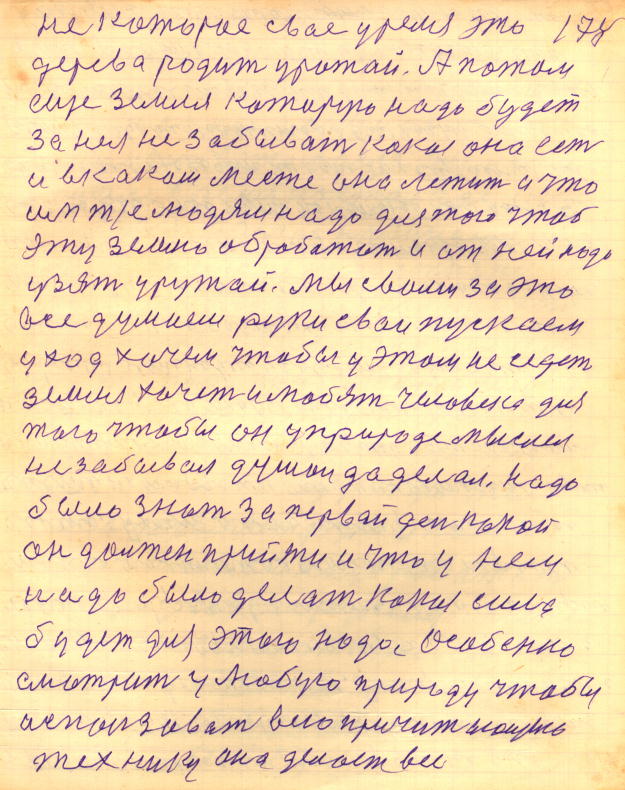 не которое свое уремя это 178
дерева родит урожай. А потом
еще земля которую надо будет
за нея не забыват какая она ест
и в каком месте она летит и что
им тже людям надо для того чтоб
эту землю обработат и от ней надо
узят уружай. Мы свами за это
все думаем руки сваи пускаем
у ход хочем чтобы у этом не седет
земля хочет и любят человека для
того чтобы он у природе мыслел
не забывал душои да делал. Надо
было знат за первай ден какой
он должен прийти и что у нем
надо было делат какая сила
будет для этого надо. Особенно
смотрит у любую природу чтобы
использоват всю причит
технику она делает все